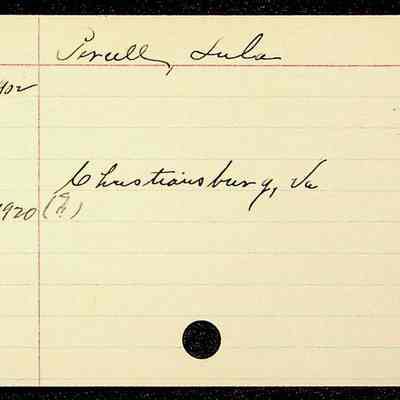 Percell, Lula
1902
Christiansburg, Va
1920 (?)